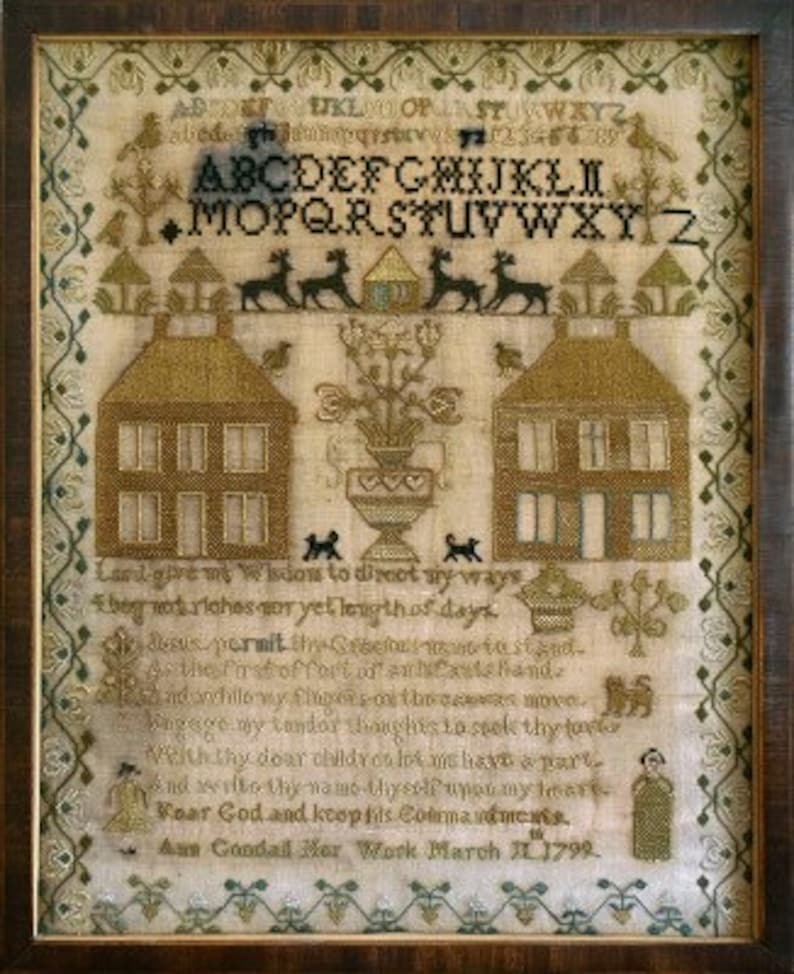 AB EF IJKL OP ST UVWXYZ
abcde ghi mnopqrstuv yz 123456
ABCDEFGHIJKL
MOPQRSTUVWXYZ
Lord give me Wisdom to direct my ways
I beg not riches nor yet length of days
Jesus permit thy Gracious name to stand
As the first effort of an infants hand
And while my fingers on the canvas move
Engage my tender thoughts to seek thy love
With thy dear children let me have a part
And write thy name thyself upon my heart
Fear God and keep his Commandments
Ann Goodall Her Work March 11th 1799